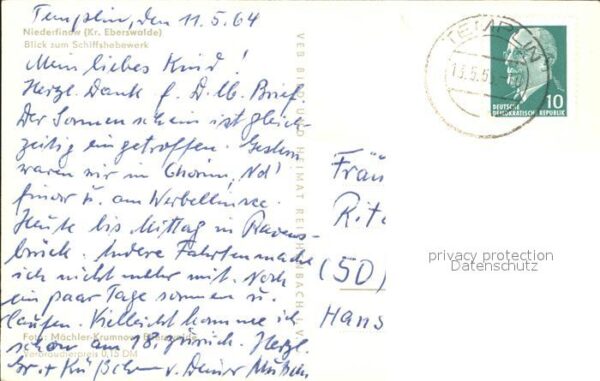 Templin, den 11.5.64
Niederfinow (Kr. Eberswalde)
Blick zum Schiffshebewerk
Mein liebes Kind!
Herzl. Dank f. D. lb. Brief.
Der Sonnenschein ist gleich-
zeitig eingetroffen. Gestern
waren wir in Chorin, Nd'
finow u. am Werbellinsee.
Heute bis Mittag in Ravens-
brück. Andere Fahrten mache
ich nicht mehr mit. Noch
ein paar Tage sonnen u.
laufen. Vielleicht komme ich
schon am 18. zurück. Herzl.
Gr. + Küßchen v. Deiner Mutsch
Foto: Mächler-Krumnow,
Verbraucherpreis 0,15 DM
VEB BILD UND HEIMAT REICHENBACH I. V.
TEMPLIN
DEUTSCHE
DEMOKRATISCHE REPUBLIK
10
Frä
Rit
(50)
Hans
privacy protection
Datenschutz